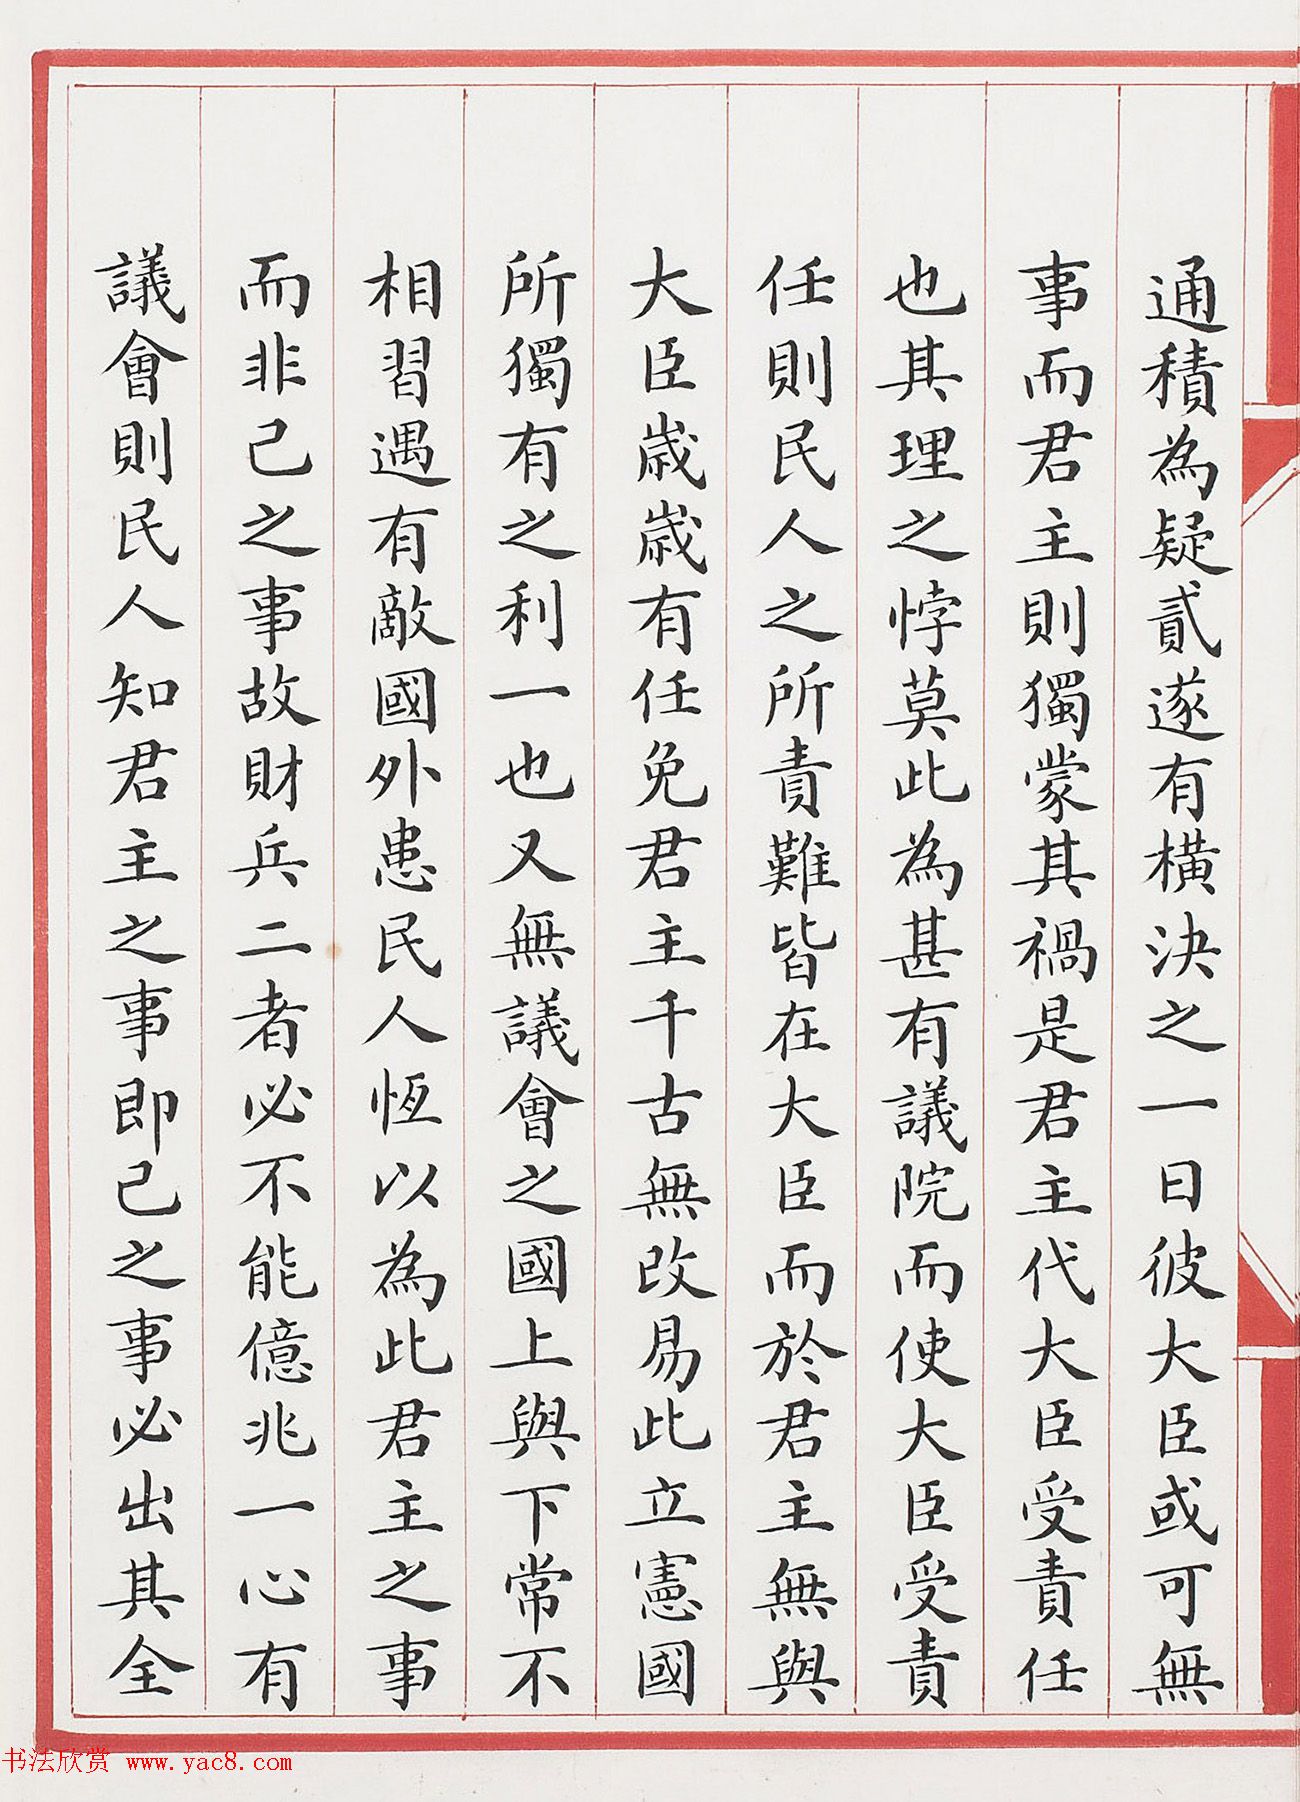 通積為疑貳遂有橫決之一日彼大臣或可無
事而君主則獨蒙其禍是君主代大臣受責任
也其理之悖莫此為甚有議院而使大臣受責
任則民人之所責難皆在大臣而於君主無與
大臣歲歲有任免君主千古無改易此立憲國
所獨有之利一也又無議會之國上與下常不
相習遇有敵國外患民人恆以為此君主之事
而非己之事故財兵二者必不能億兆一心有
議會則民人知君主之事即己之事必出其全
书法欣赏 www.yac8.com